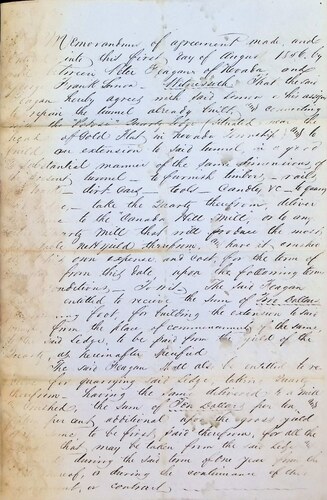 Memorandum of agreement made and
into this first day of August 1866, by
between Peter Feagans of Nevada and
Frank Witnesseth: That the said
Feagan hereby agrees with said his assigns
repair the tunnel already built, & connecting
the Ledge situated near the
of Gold Flat, in Nevada Township & to
an extension to said tunnel, in a good
substantial manner of the same dimensions of
tunnel, to furnish timbers, rails
dirt Cars, Tools, Candles, &c to quarry
take the Quartz therefrom, deliver
to the "Canada Hill Mill," or to any
Mill that will produce the most
yield therefrom, & have it crushed
own expense and Cost, for the term of
from this date, upon the following terms
conditions, To Wit, The said Feagan
entitled to receive the Sum of Five Dollars
foot, for building the extension to said
from the place of commencement of the same
said Ledge, to be paid from yield of the
Quartz as hereinafter specified
The said Feagan shall also be entitled to
for quarrying said Ledge, taking Quartz
therefrom, having the same delivered to a mill
crushed, the sum of Ten Dollars per ton &
per cent additional upon the gross yield
to be first paid therefrom, for all the
that may be taken from the said Ledge
during the said term of One year from the
or during the continuance of this
or contract